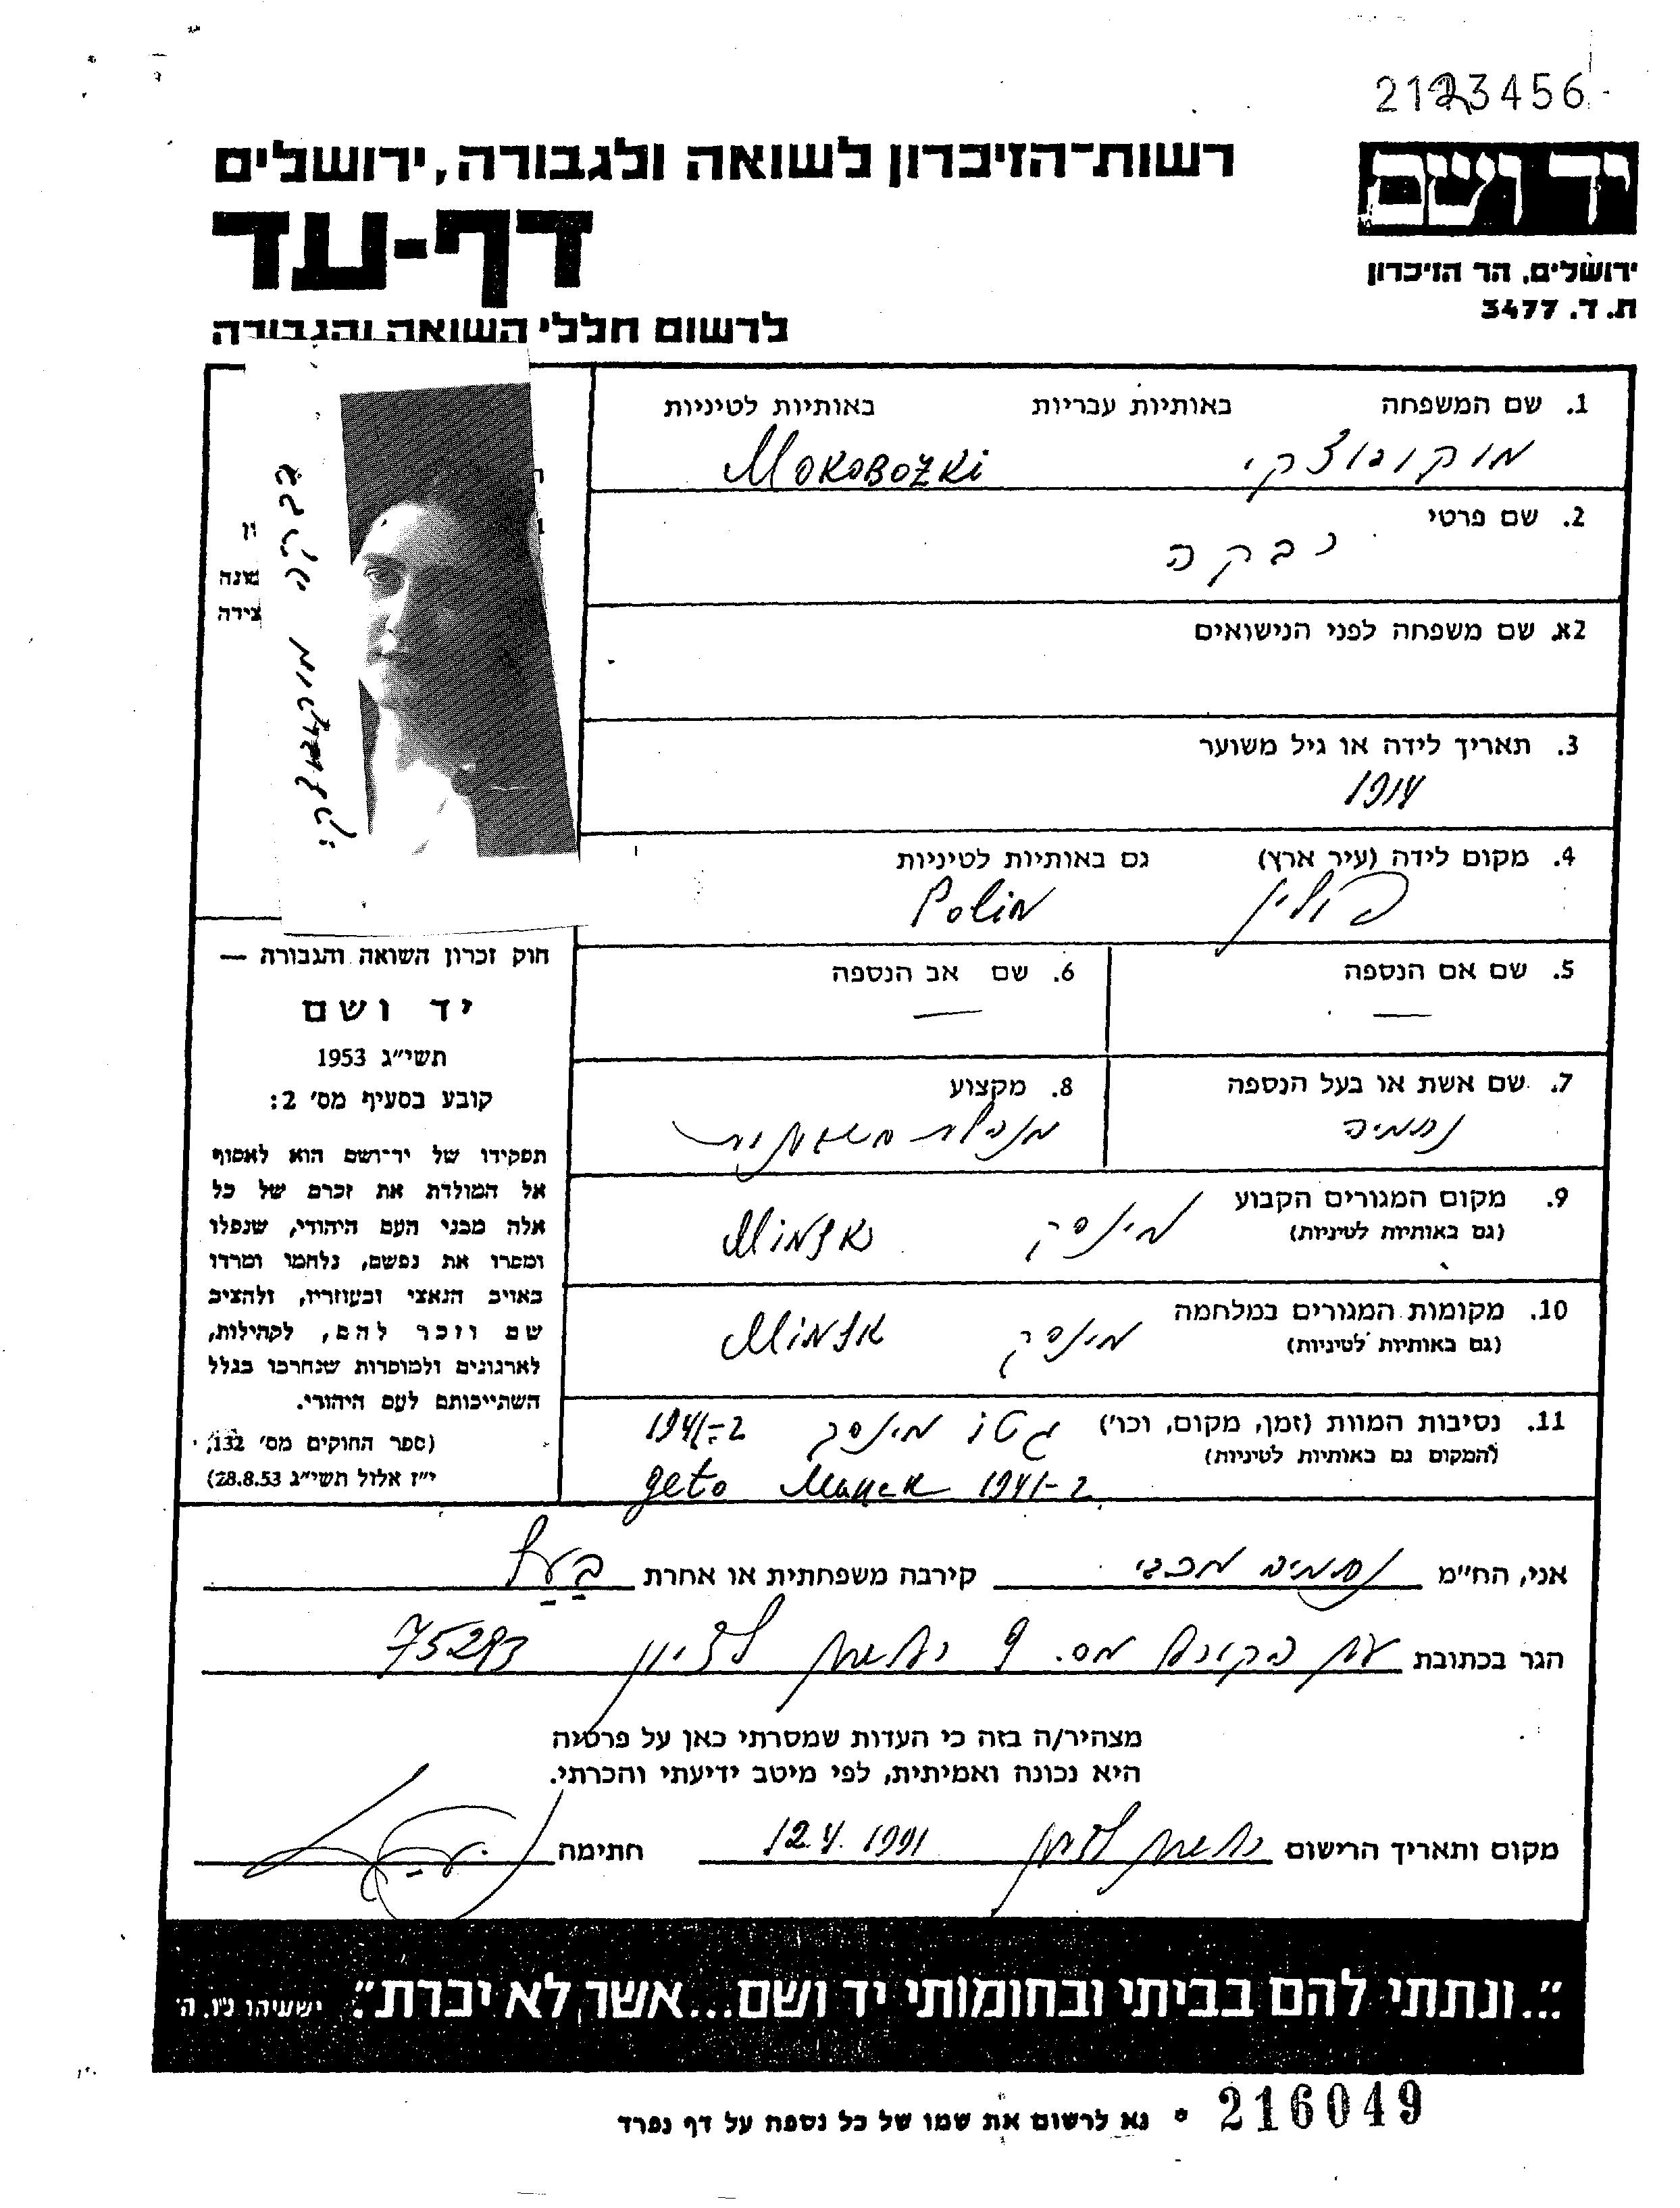 2123456
רשות־הזיכרון לשואה ולגבורה, ירושלים
דף-עד
לרשום חללי השואה והגבורה
יד ושם
ירושלים, הר הזיכרון
ת. ד. 3477
1. שם המשפחה באותיות עבריות באותיות לטיניות
מוקובוצקי Mokobozki
2. שם פרטי
רבקה
2א. שם משפחה לפני הנישואים
3. תאריך לידה או גיל משוער
1914
4. מקום לידה (עיר ארץ) גם באותיות לטיניות
פולין Polin
5. שם אם הנספה
—
6. שם אב הנספה
—
7. שם אשת או בעל הנספה
נחמיה
8. מקצוע
מנהלת חשבונות
9. מקום המגורים הקבוע
(גם באותיות לטיניות)
מינסק Minsk
10. מקומות המגורים במלחמה
(גם באותיות לטיניות)
מינסק Minsk
11. נסיבות המוות (זמן, מקום, וכו')
(המקום גם באותיות לטיניות)
גטו מינסק 1941-2
geto 1941-2
רבקה מוקובוצקי
חוק זכרון השואה והגבורה —
יד ושם
תשי״ג 1953
קובע בסעיף מס' 2:
תפקידו של יד־ושם הוא לאסוף
אל המולדת את זכרם של כל
אלה מבני העם היהודי, שנפלו
ומסרו את נפשם, נלחמו ומרדו
באויב הנאצי ובעוזריו, ולהציב
שם וזכר להם, לקהילות,
לארגונים ולמוסדות שנחרבו בגלל
השתייכותם לעם היהודי.
(ספר החוקים מס' 132,
י״ז אלול תשי״ג 28.8.53)
אני, הח״מ נחמיה מכבי קירבה משפחתית או אחרת בעל
הגר בכתובת מס. 9 ראשון לציון 75293
מצהיר/ה בזה כי העדות שמסרתי כאן על פרטיה
היא נכונה ואמיתית, לפי מיטב ידיעתי והכרתי.
מקום ותאריך הרישום ראשון לציון 12.4.1991 חתימה
״...ונתתי להם בביתי ובחומותי יד ושם...אשר לא יכרת״. ישעיהו נ״ו, ה׳
נא לרשום את שמו של כל נספה על דף נפרד * 216049